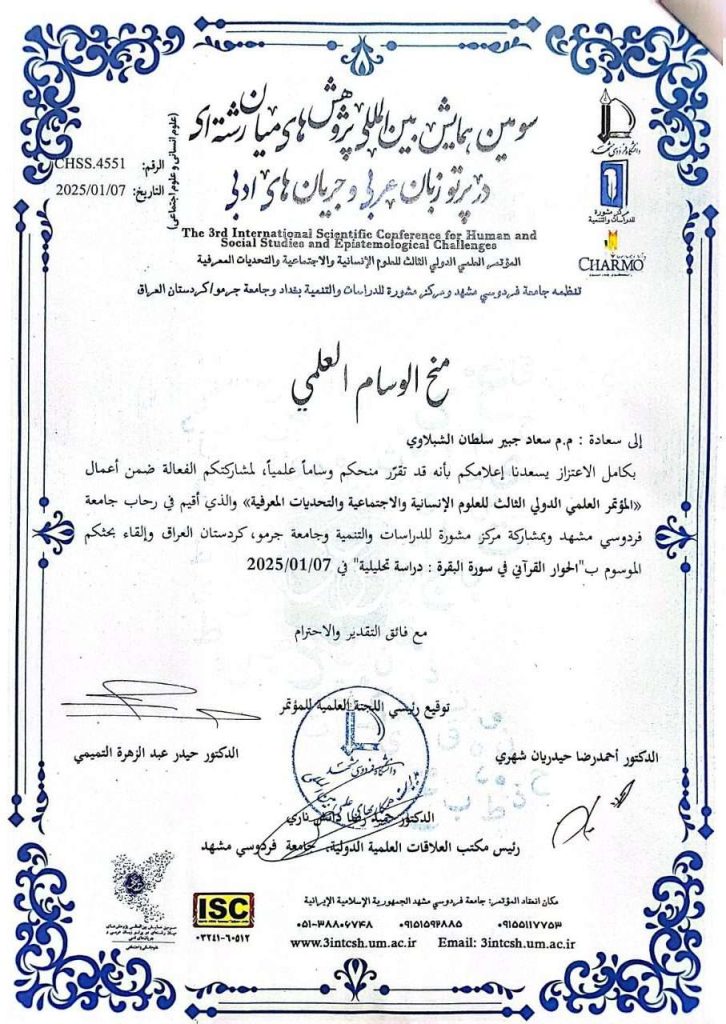 سومین همایش بین‌المللی پژوهش‌های میان رشته‌ای
در پرتو زبان عربی و جریان های ادبی
(علوم انسانی و علوم اجتماعی)
الرقم: CHSS.4551
التاريخ: 2025/01/07
دانشگاه فردوسی مشهد
مركز مشورة
للدراسات والتنمية
CHARMO
The 3rd International Scientific Conference for Human and
Social Studies and Epistemological Challenges
المؤتمر العلمي الدولي الثالث للعلوم الإنسانية والاجتماعية والتحديات المعرفية
تنظمه جامعة فردوسي مشهد ومركز مشورة للدراسات والتنمية بغداد وجامعة جرمو/كردستان العراق
منح الوسام العلمي
إلى سعادة : م.م سعاد جبير سلطان الشبلاوي
بكامل الاعتزاز يسعدنا إعلامكم بأنه قد تقرّر منحكم وساماً علمياً، لمشاركتكم الفعالة ضمن أعمال
«المؤتمر العلمي الدولي الثالث للعلوم الإنسانية والاجتماعية والتحديات المعرفية» والذي أقيم في رحاب جامعة
فردوسي مشهد وبمشاركة مركز مشورة للدراسات والتنمية وجامعة جرمو، كردستان العراق وإلقاء بحثكم
الموسوم ب"الحوار القرآني في سورة البقرة : دراسة تحليلية" في 2025/01/07
مع فائق التقدير والاحترام
توقيع رئيسي اللجنة العلمية للمؤتمر
الدكتور أحمدرضا حيدريان شهري
الدكتور حيدر عبد الزهرة التميمي
دانشگاه فردوسی مشهد
الدكتور حميد رضا دانش ناري
رئيس مكتب العلاقات العلمية الدولية، جامعة فردوسي مشهد
مكان انعقاد المؤتمر: جامعة فردوسي مشهد الجمهورية الإسلامية الإيرانية
۰۹۱۵۵۱۱۷۷۵۳ ۰۹۱۵۱۵۹۲۸۸۵ ۰۵۱-۳۸۸۰۶۷۴۸
www.3intcsh.um.ac.ir Email: 3intcsh.um.ac.ir
ISC
۰۳۲۴۱-۶۰۵۱۲